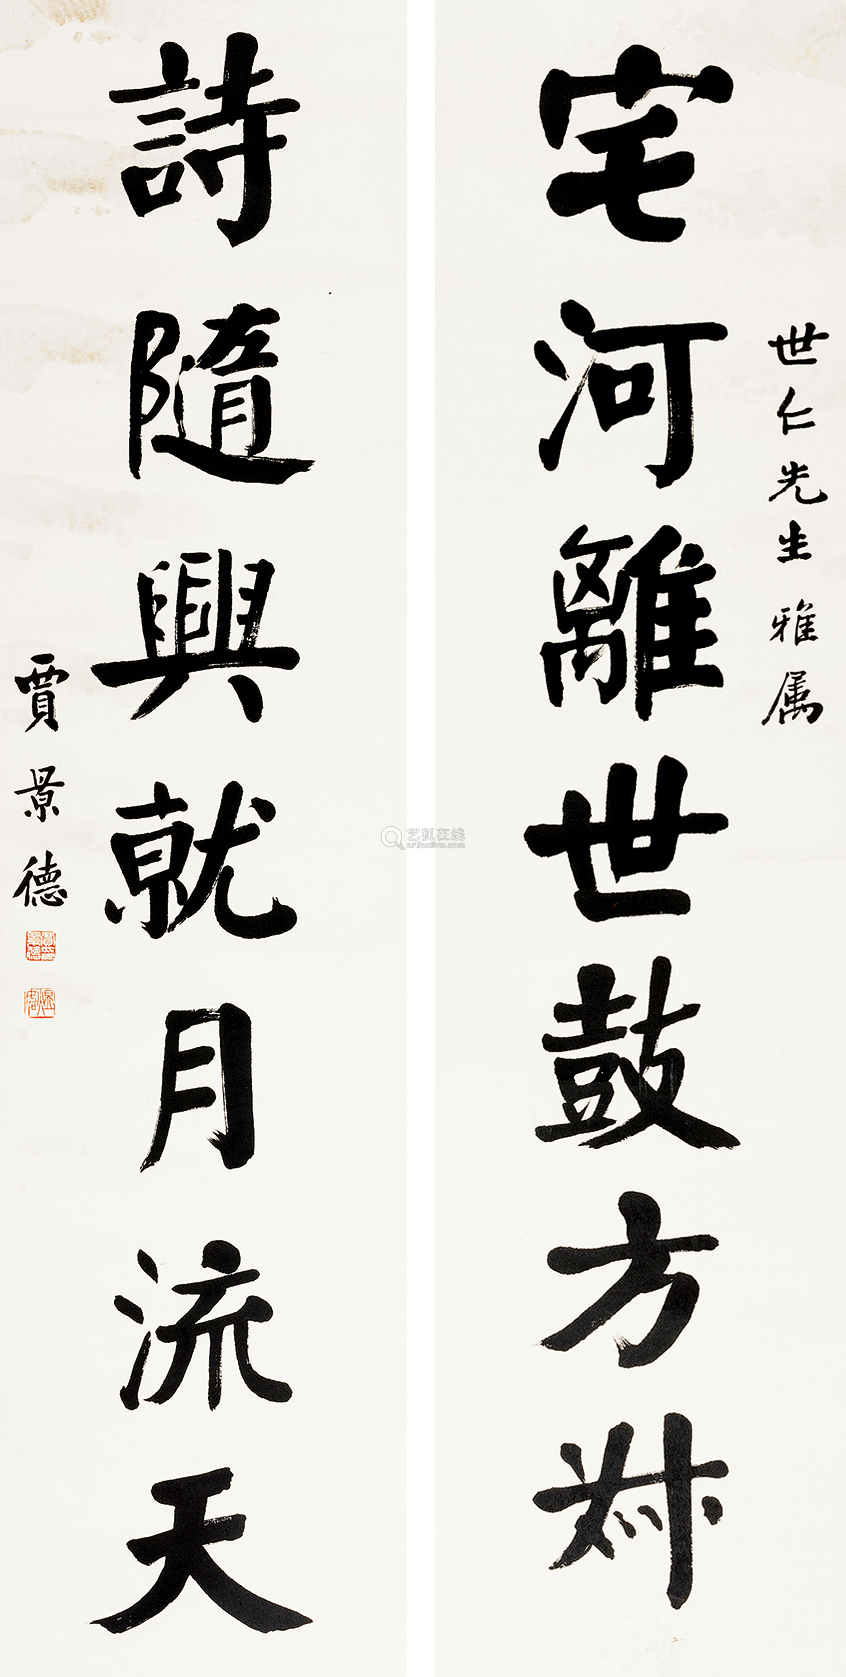 世仁先生雅属
宅河離世鼓方叔
詩隨興就月流天
賈景德
艺狐在线
artfoxlive.com